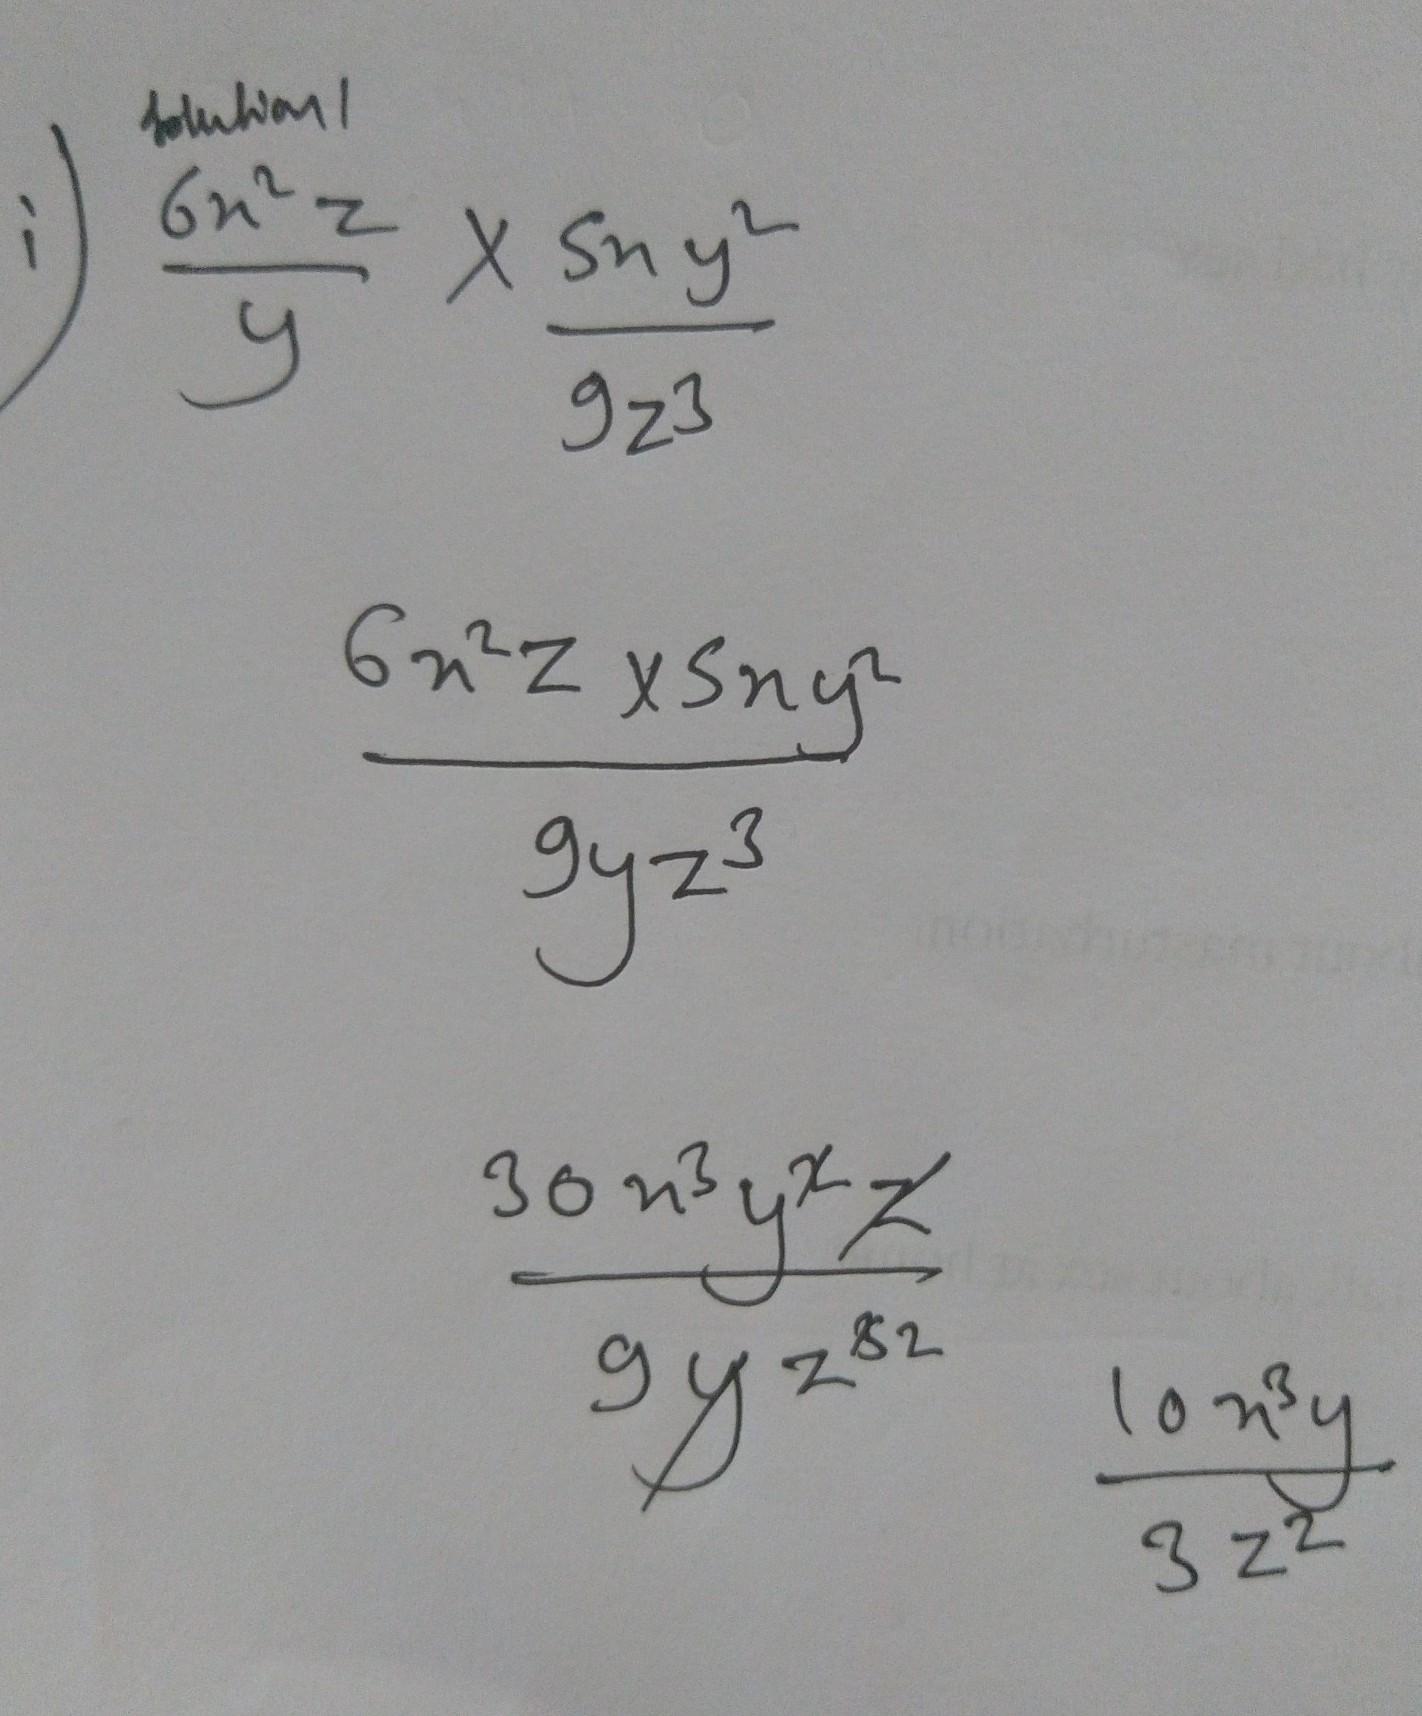 solution 1
i) 6x² z / y × 5x y² / 9z3
6x² z × 5x y² / 9y z³
30 x³ y² z / 9 y z³ 2
10 x³ y / 3 z²